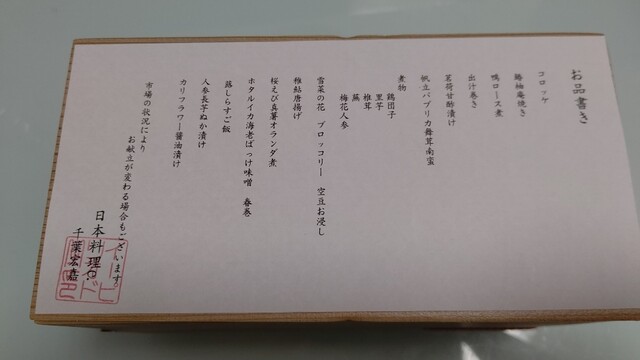 お品書き
コロッケ
鰆柚庵焼き
鴨ロース煮
出汁巻き
茗荷甘酢漬け
帆立パプリカ舞茸南蛮
煮物
鶏団子
里芋
椎茸
蕪
梅花人参
雪菜の花 ブロッコリー 空豆お浸し
稚鮎唐揚げ
桜えび真薯オランダ煮
ホタルイカ海老ばっけ味噌 春巻
蕗しらすご飯
人参長芋ぬか漬け
カリフラワー醤油漬け
市場の状況により
お献立が変わる場合もございます。
日本料理
千葉宏